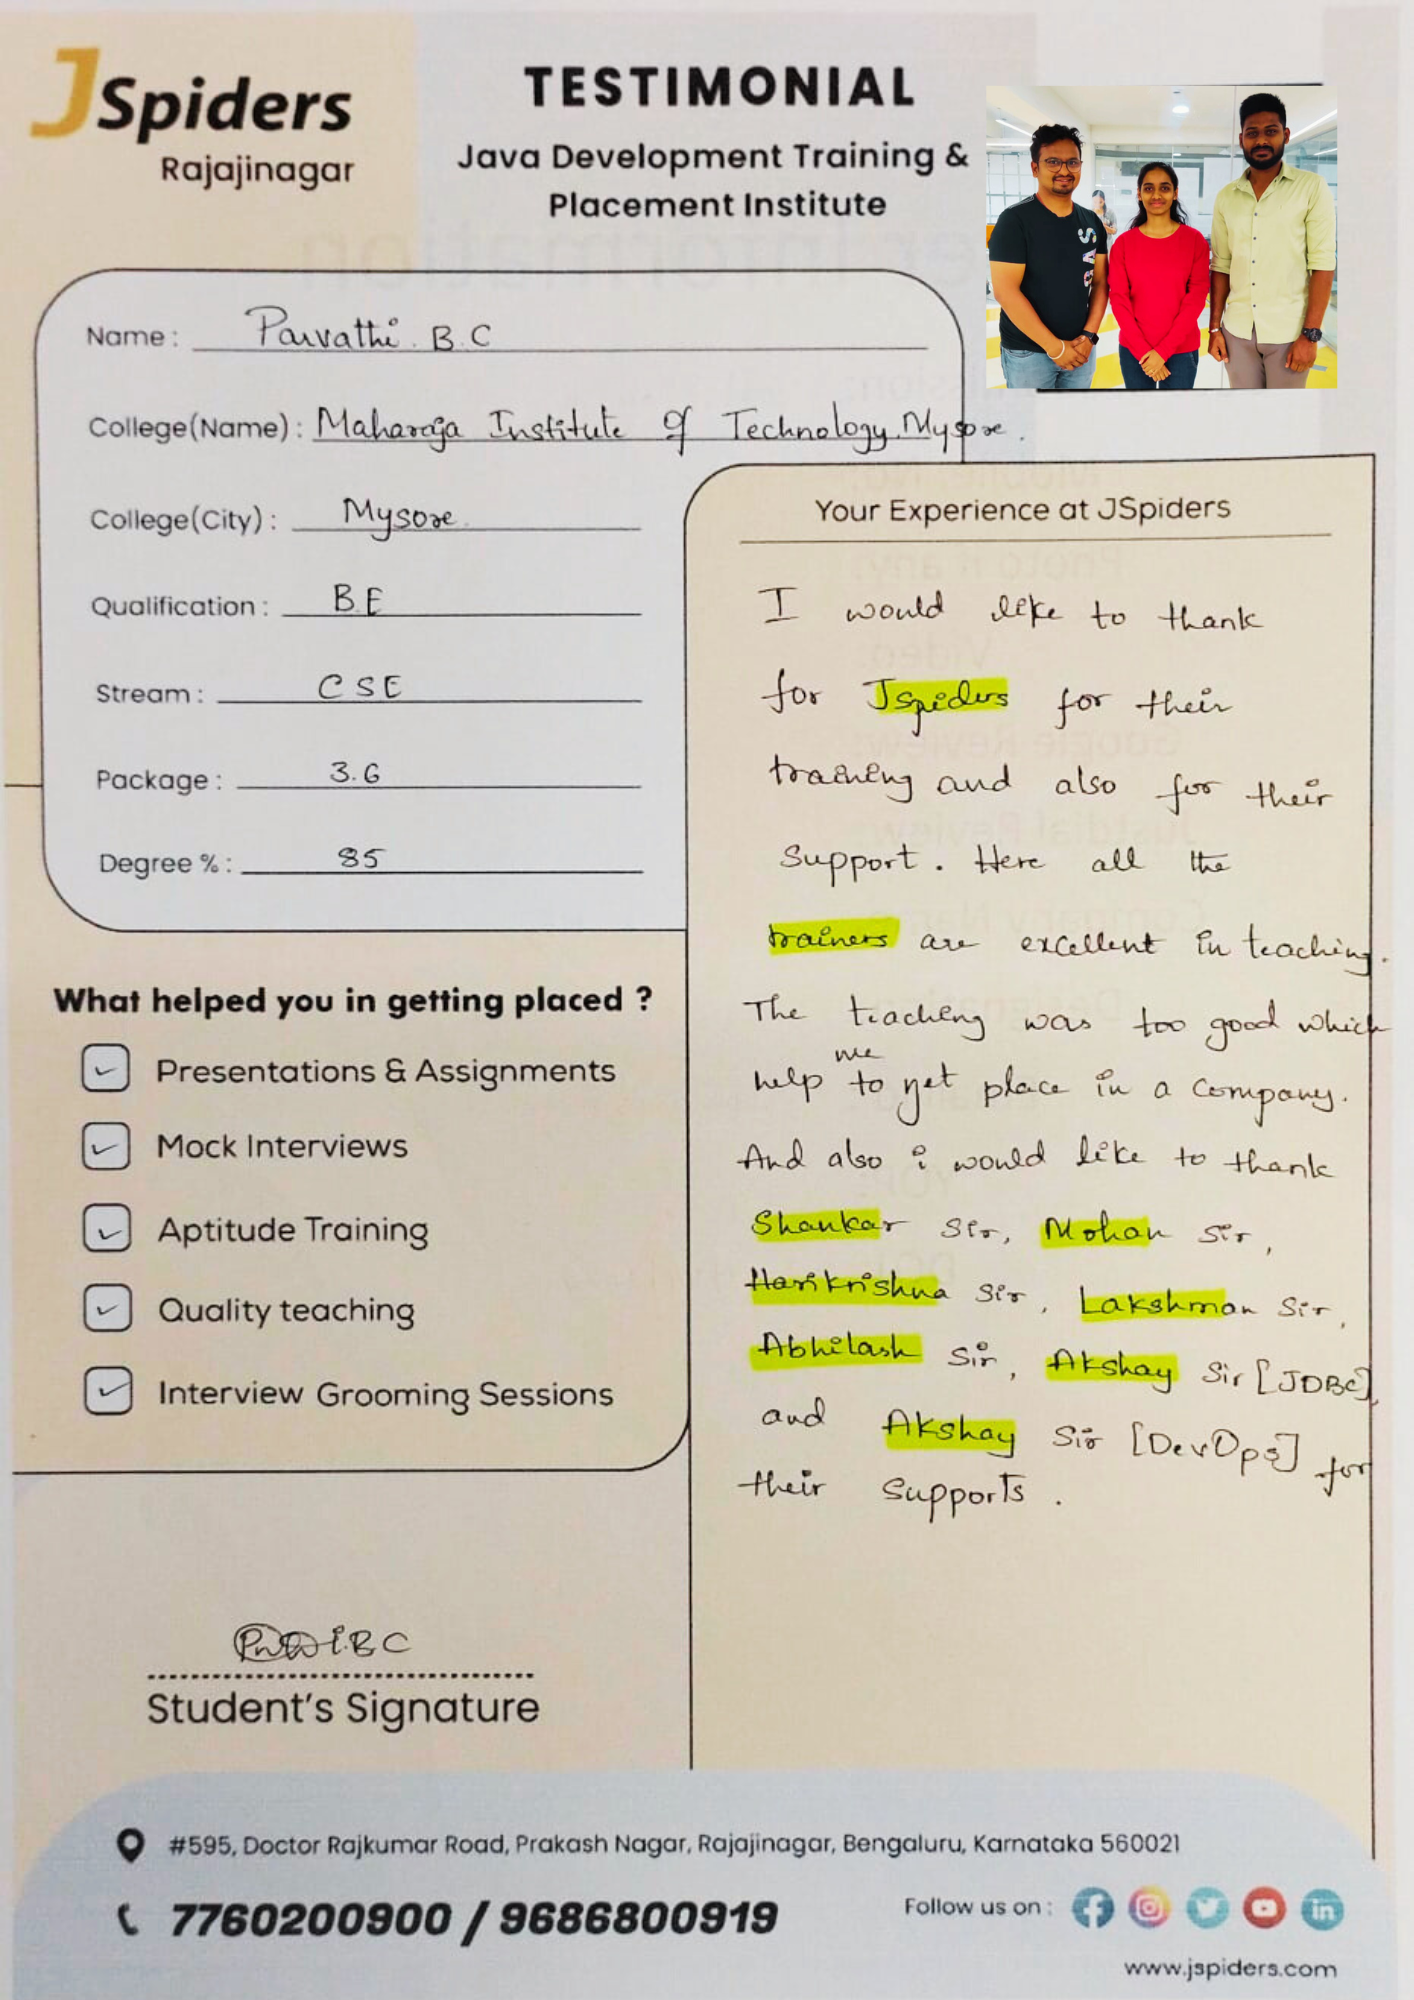 JSpiders
Rajajinagar
TESTIMONIAL
Java Development Training &
Placement Institute
Name : Parvathi. B.C
College(Name) : Maharaja Institute of Technology Mysore.
College(City) : Mysore
Qualification : B.E
Stream : CSE
Package : 3.6
Degree % : 85
What helped you in getting placed ?
Presentations & Assignments
Mock Interviews
Aptitude Training
Quality teaching
Interview Grooming Sessions
Student's Signature
Your Experience at JSpiders
I would like to thank
for Jspiders for their
training and also for their
Support. Here all the
trainers are excellent in teaching.
The teaching was too good which
me
help to get place in a company.
And also i would like to thank
Shankar Sir, Mohan Sir,
Harikrishna Sir, Lakshman Sir,
Abhilash Sir, Akshay Sir [JDBC]
and Akshay Sir [DevOps] for
their Supports.
#595, Doctor Rajkumar Road, Prakash Nagar, Rajajinagar, Bengaluru, Karnataka 560021
7760200900 / 9686800919
Follow us on :
www.jspiders.com